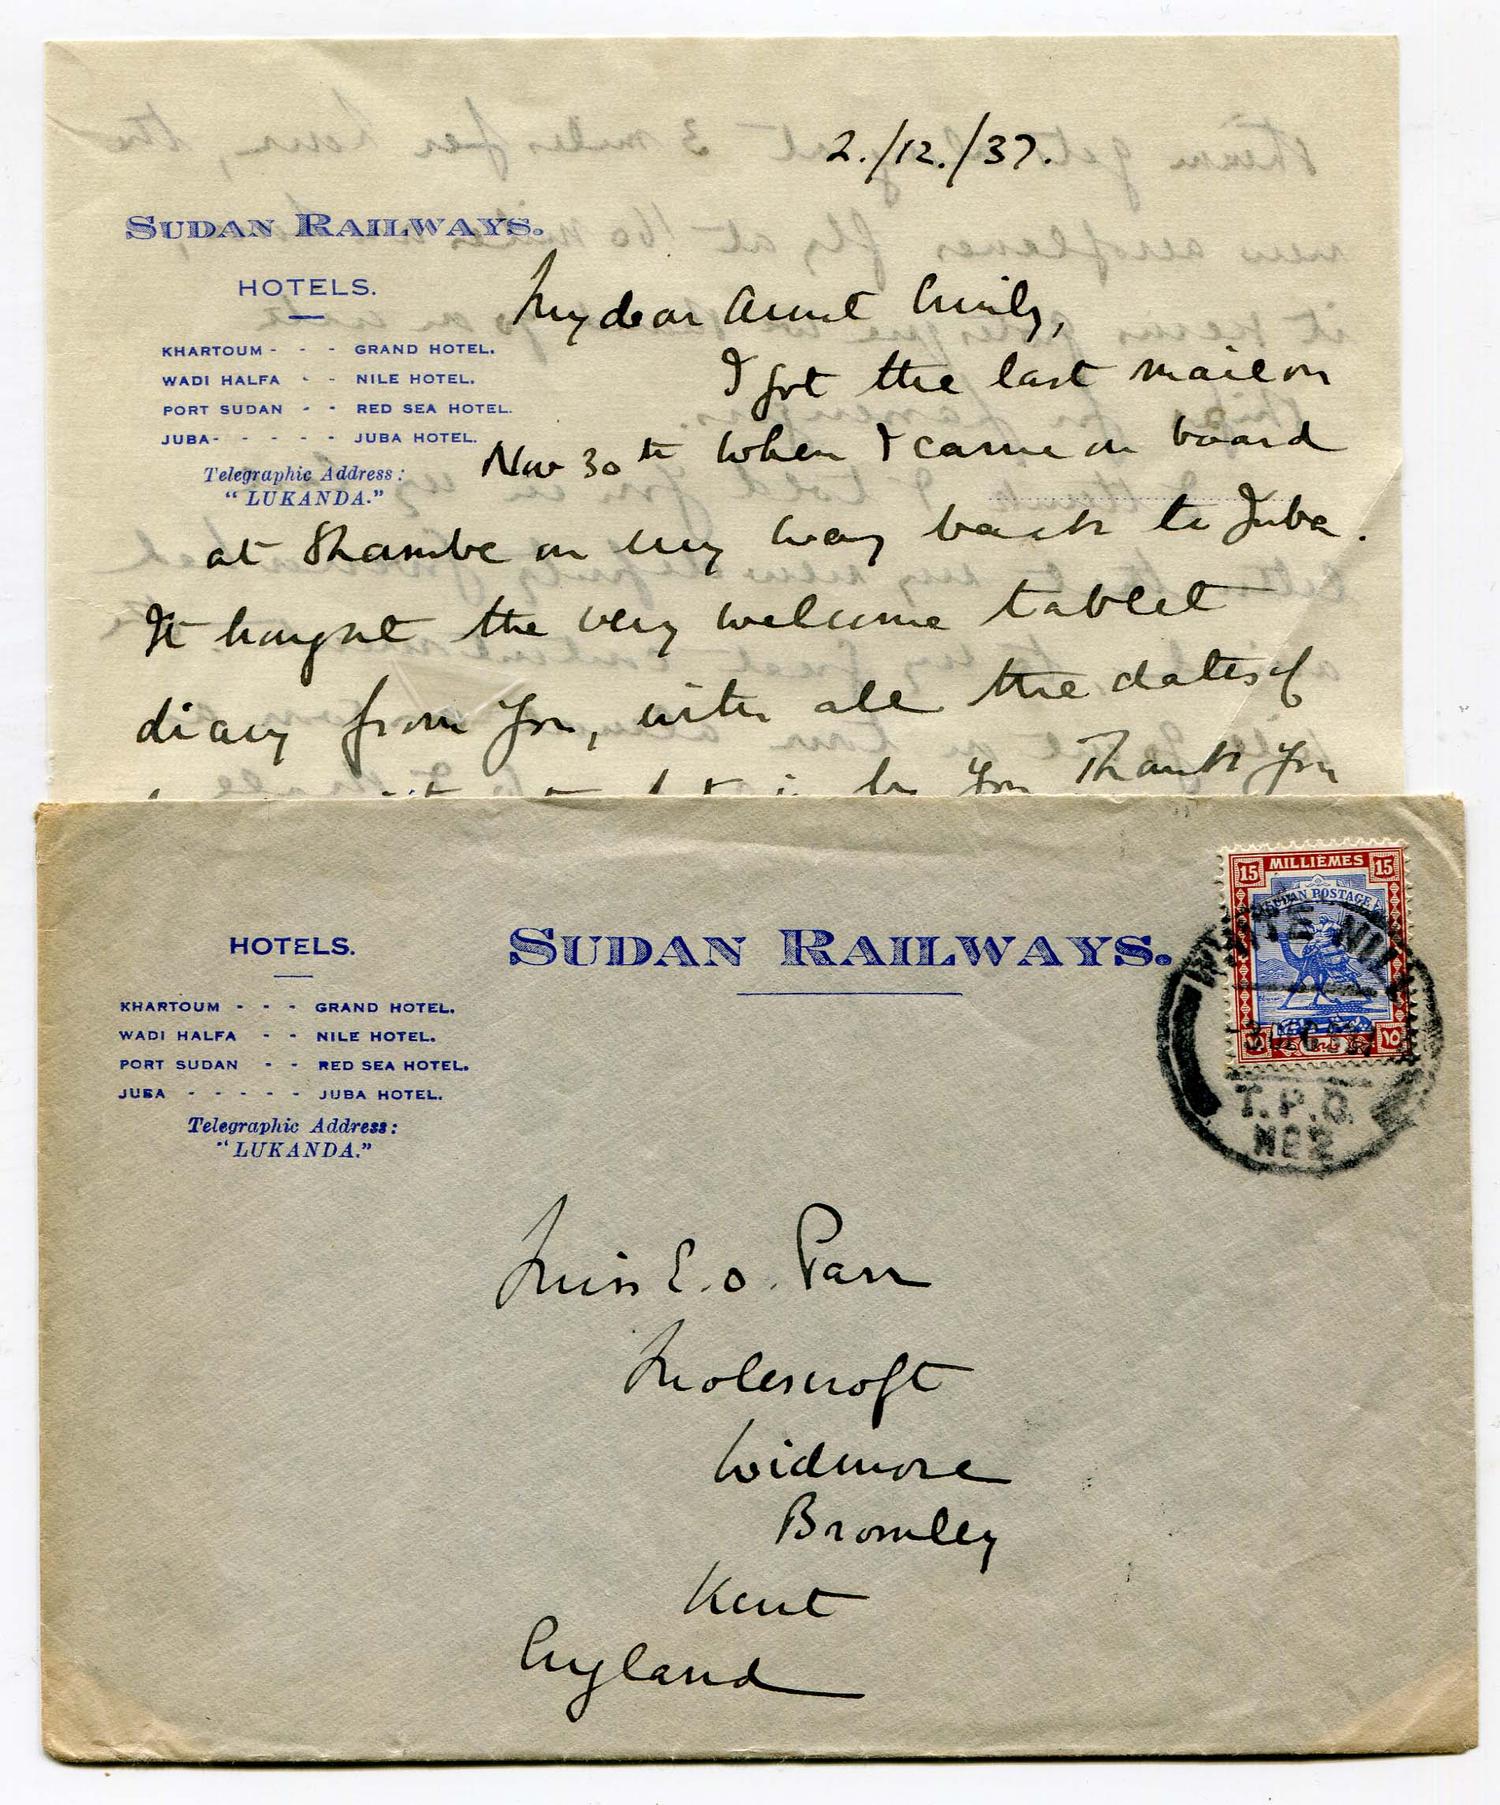 2./12./37.
SUDAN RAILWAYS.
HOTELS.
KHARTOUM - - - GRAND HOTEL.
WADI HALFA - - NILE HOTEL.
PORT SUDAN - - RED SEA HOTEL.
JUBA- - - - - JUBA HOTEL.
Telegraphic Address:
"LUKANDA."
My dear Aunt Emily,
I got the last mail on
Nov 30th when I came on board
at Shambe on my way back to Juba.
It brought the very welcome tablet
diary from you, with all the dates of
by you. Thank you
HOTELS.
SUDAN RAILWAYS.
KHARTOUM - - - GRAND HOTEL.
WADI HALFA - - NILE HOTEL.
PORT SUDAN - - RED SEA HOTEL.
JUBA - - - - - JUBA HOTEL.
Telegraphic Address:
"LUKANDA."
15 MILLIÈMES 15
SUDAN POSTAGE
WHITE NILE
T.P.O.
Nº 2
Miss E. O. Parr
Molescroft
Widmore
Bromley
Kent
England